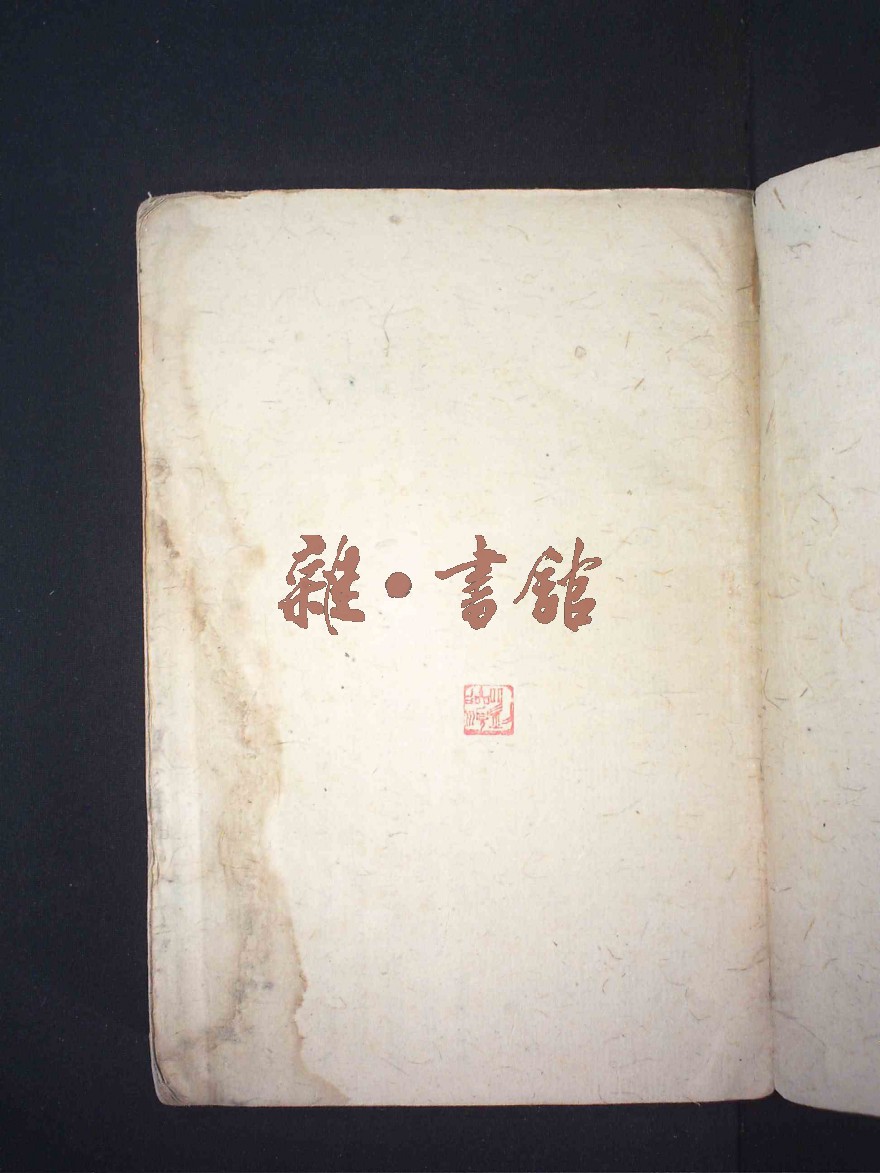 雜•書館